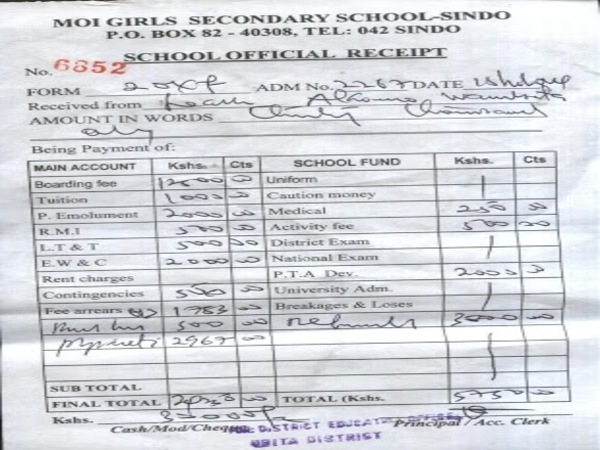 MOI GIRLS SECONDARY SCHOOL-SINDO
P.O. BOX 82 - 40308, TEL: 042 SINDO
SCHOOL OFFICIAL RECEIPT
No. 6852
FORM ADM No. DATE
Received from
AMOUNT IN WORDS Thirty Thousand
only
Being Payment of:
MAIN ACCOUNT Kshs. Cts SCHOOL FUND Kshs. Cts
Boarding fee 12500 00 Uniform
Tuition 1000 00 Caution money
P. Emolument 2000 00 Medical 250 00
R.M.I 500 00 Activity fee 500 00
L.T & T 500 00 District Exam
E.W & C 2000 00 National Exam
Rent charges P.T.A Dev. 2000 00
Contingencies 500 00 University Adm.
Fee arrears 1783 00 Breakages & Loses
500 00 3000 00
2967 00
SUB TOTAL
FINAL TOTAL 00 TOTAL (Kshs. 5750 00
Kshs.
Cash/Mod/Cheque Principal / Acc. Clerk
DISTRICT EDUCATION OFFICER
MBITA DISTRICT